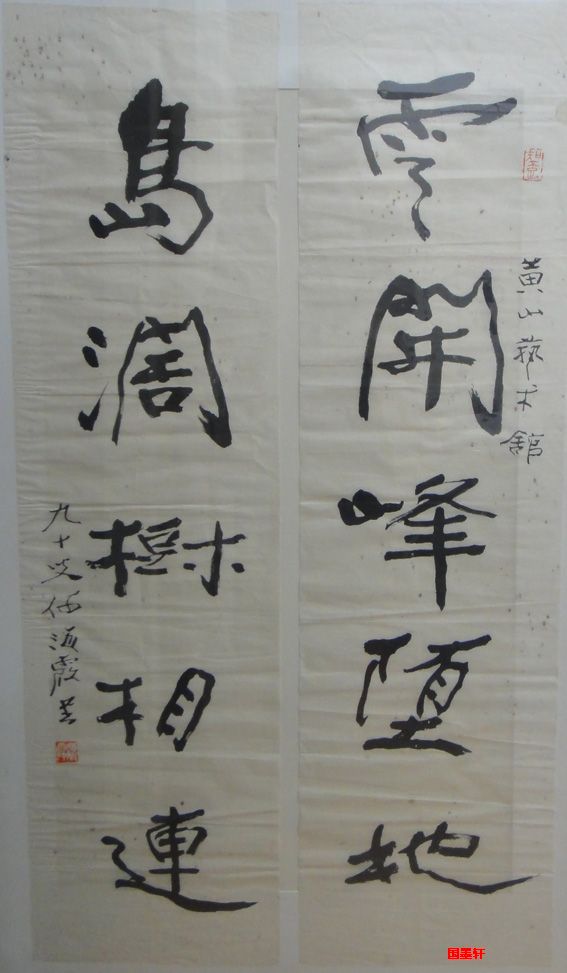 黄山藝术館
雲開峰墮地
島濶樹相連
九十叟海霞
国墨轩